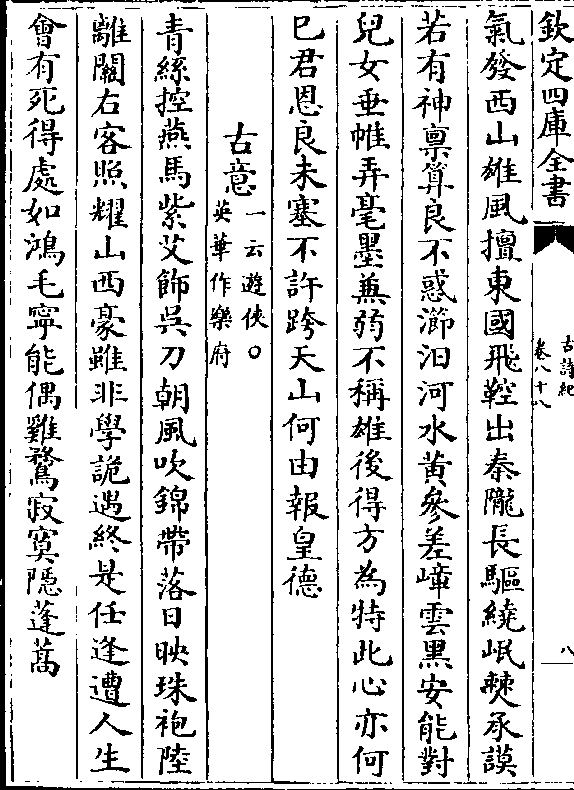 欽定四庫全書
古詩紀
卷八十八
八
氣發西山雄風擅東國飛鞚出秦隴長驅繞岷㯤承謨
若有神禀算良不惑㴉汨河水黄參差嶂雲黒安能對
兒女垂帷弄毫墨兼弱不稱雄後得方為特此心亦何
已君恩良未塞不許跨天山何由報皇德
古意
一云遊俠○
英華作樂府
青絲控燕馬紫艾飾吳刀朝風吹錦帶落日映珠袍陸
離關右客照耀山西豪雖非學詭遇終是任逢遭人生
會有死得處如鴻毛寧能偶雞鶩寂寞隱蓬蒿